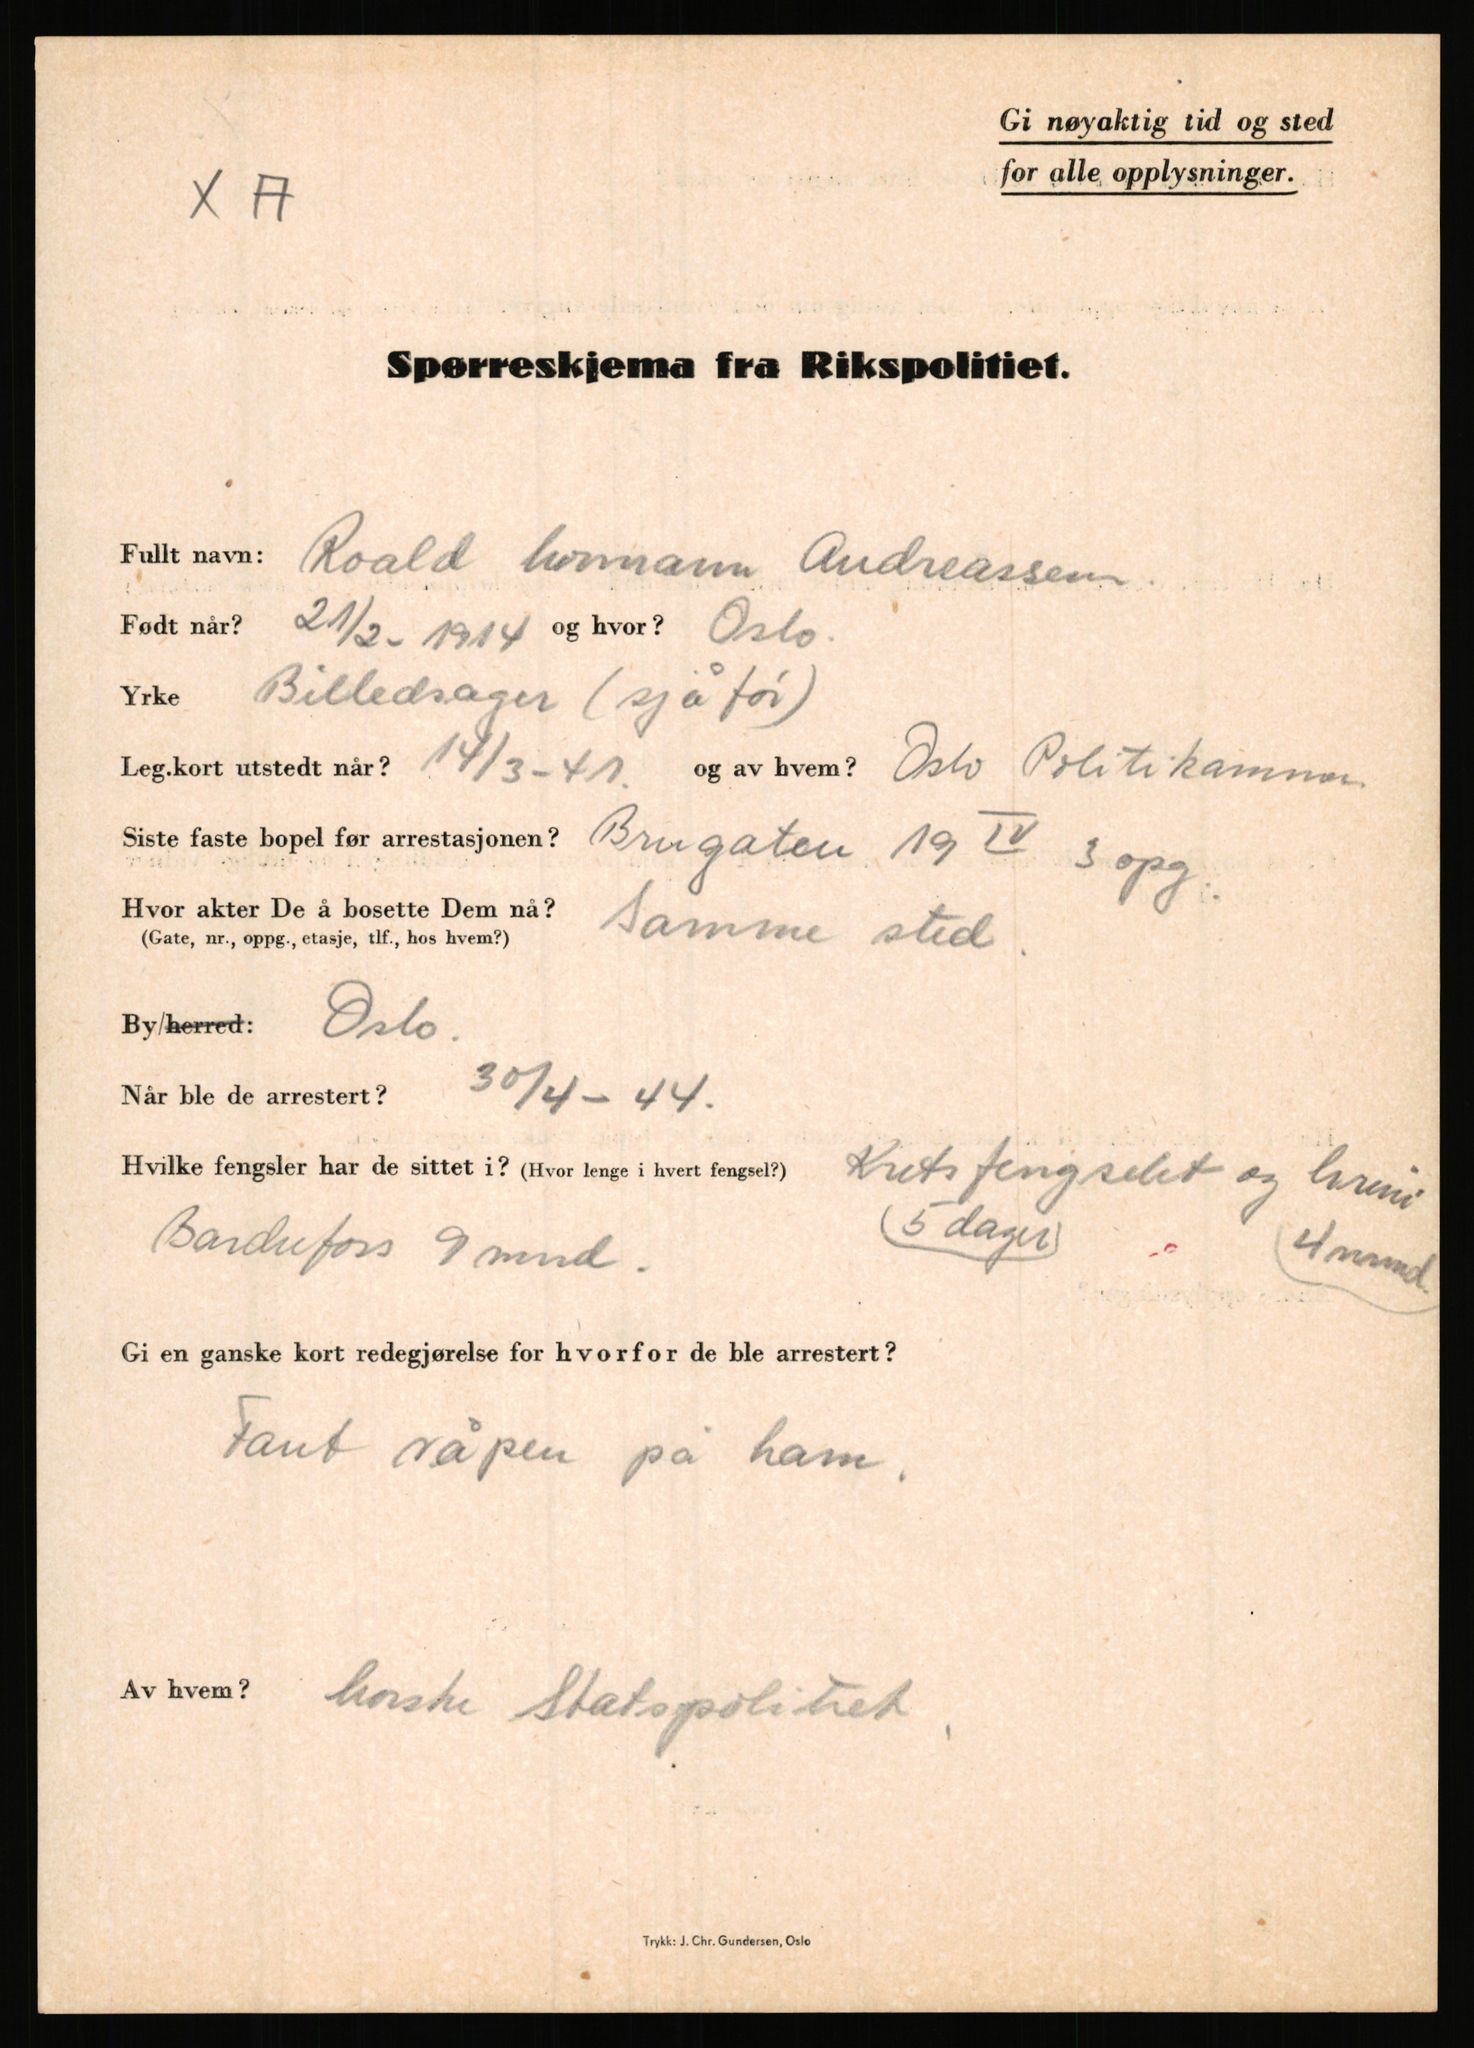 Gi nøyaktig tid og sted
for alle opplysninger.
X A
Spørreskjema fra Rikspolitiet.
Fullt navn: Roald Normann Andreassen.
Født når? 21/2 - 1914 og hvor? Oslo.
Yrke Billedsager (sjåfør)
Leg.kort utstedt når? 14/3 - 41. og av hvem? Oslo Politikammer
Siste faste bopel før arrestasjonen? Brugaten 19 IV 3 opg.
Hvor akter De å bosette Dem nå? Samme sted.
(Gate, nr., oppg., etasje, tlf., hos hvem?)
By/herred: Oslo.
Når ble de arrestert? 30/4 - 44.
Hvilke fengsler har de sittet i? (Hvor lenge i hvert fengsel?) Kretsfengselet og Grini
Bardufoss 9 mnd. (5 dager) (4 mnd.
Gi en ganske kort redegjørelse for hvorfor de ble arrestert?
Fant våpen på ham.
Av hvem? Norske Statspolitiet.
Trykk: J. Chr. Gundersen, Oslo